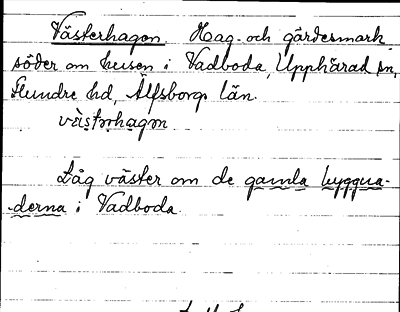 Västerhagen Hag- och gärdesmark
söder om husen i Vadboda, Upphärad sn,
Flundre hd, Älfsborgs län.
västrhagm
Låg väster om de gamla byggna-
derna i Vadboda